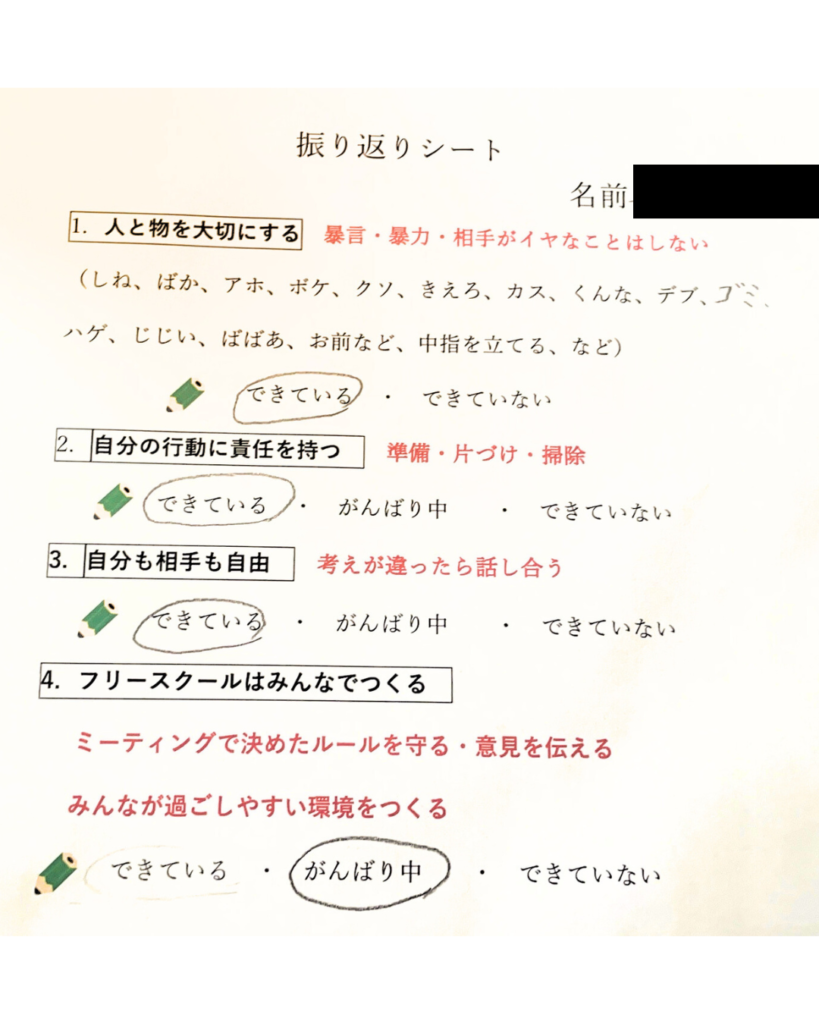 振り返りシート
名前
1. 人と物を大切にする 暴言・暴力・相手がイヤなことはしない
(しね、ばか、アホ、ボケ、クソ、きえろ、カス、くんな、デブ、ゴミ、
ハゲ、じじい、ばばあ、お前など、中指を立てる、など)
できている ・ できていない
2. 自分の行動に責任を持つ 準備・片づけ・掃除
できている ・ がんばり中 ・ できていない
3. 自分も相手も自由 考えが違ったら話し合う
できている ・ がんばり中 ・ できていない
4. フリースクールはみんなでつくる
ミーティングで決めたルールを守る・意見を伝える
みんなが過ごしやすい環境をつくる
できている ・ がんばり中 ・ できていない